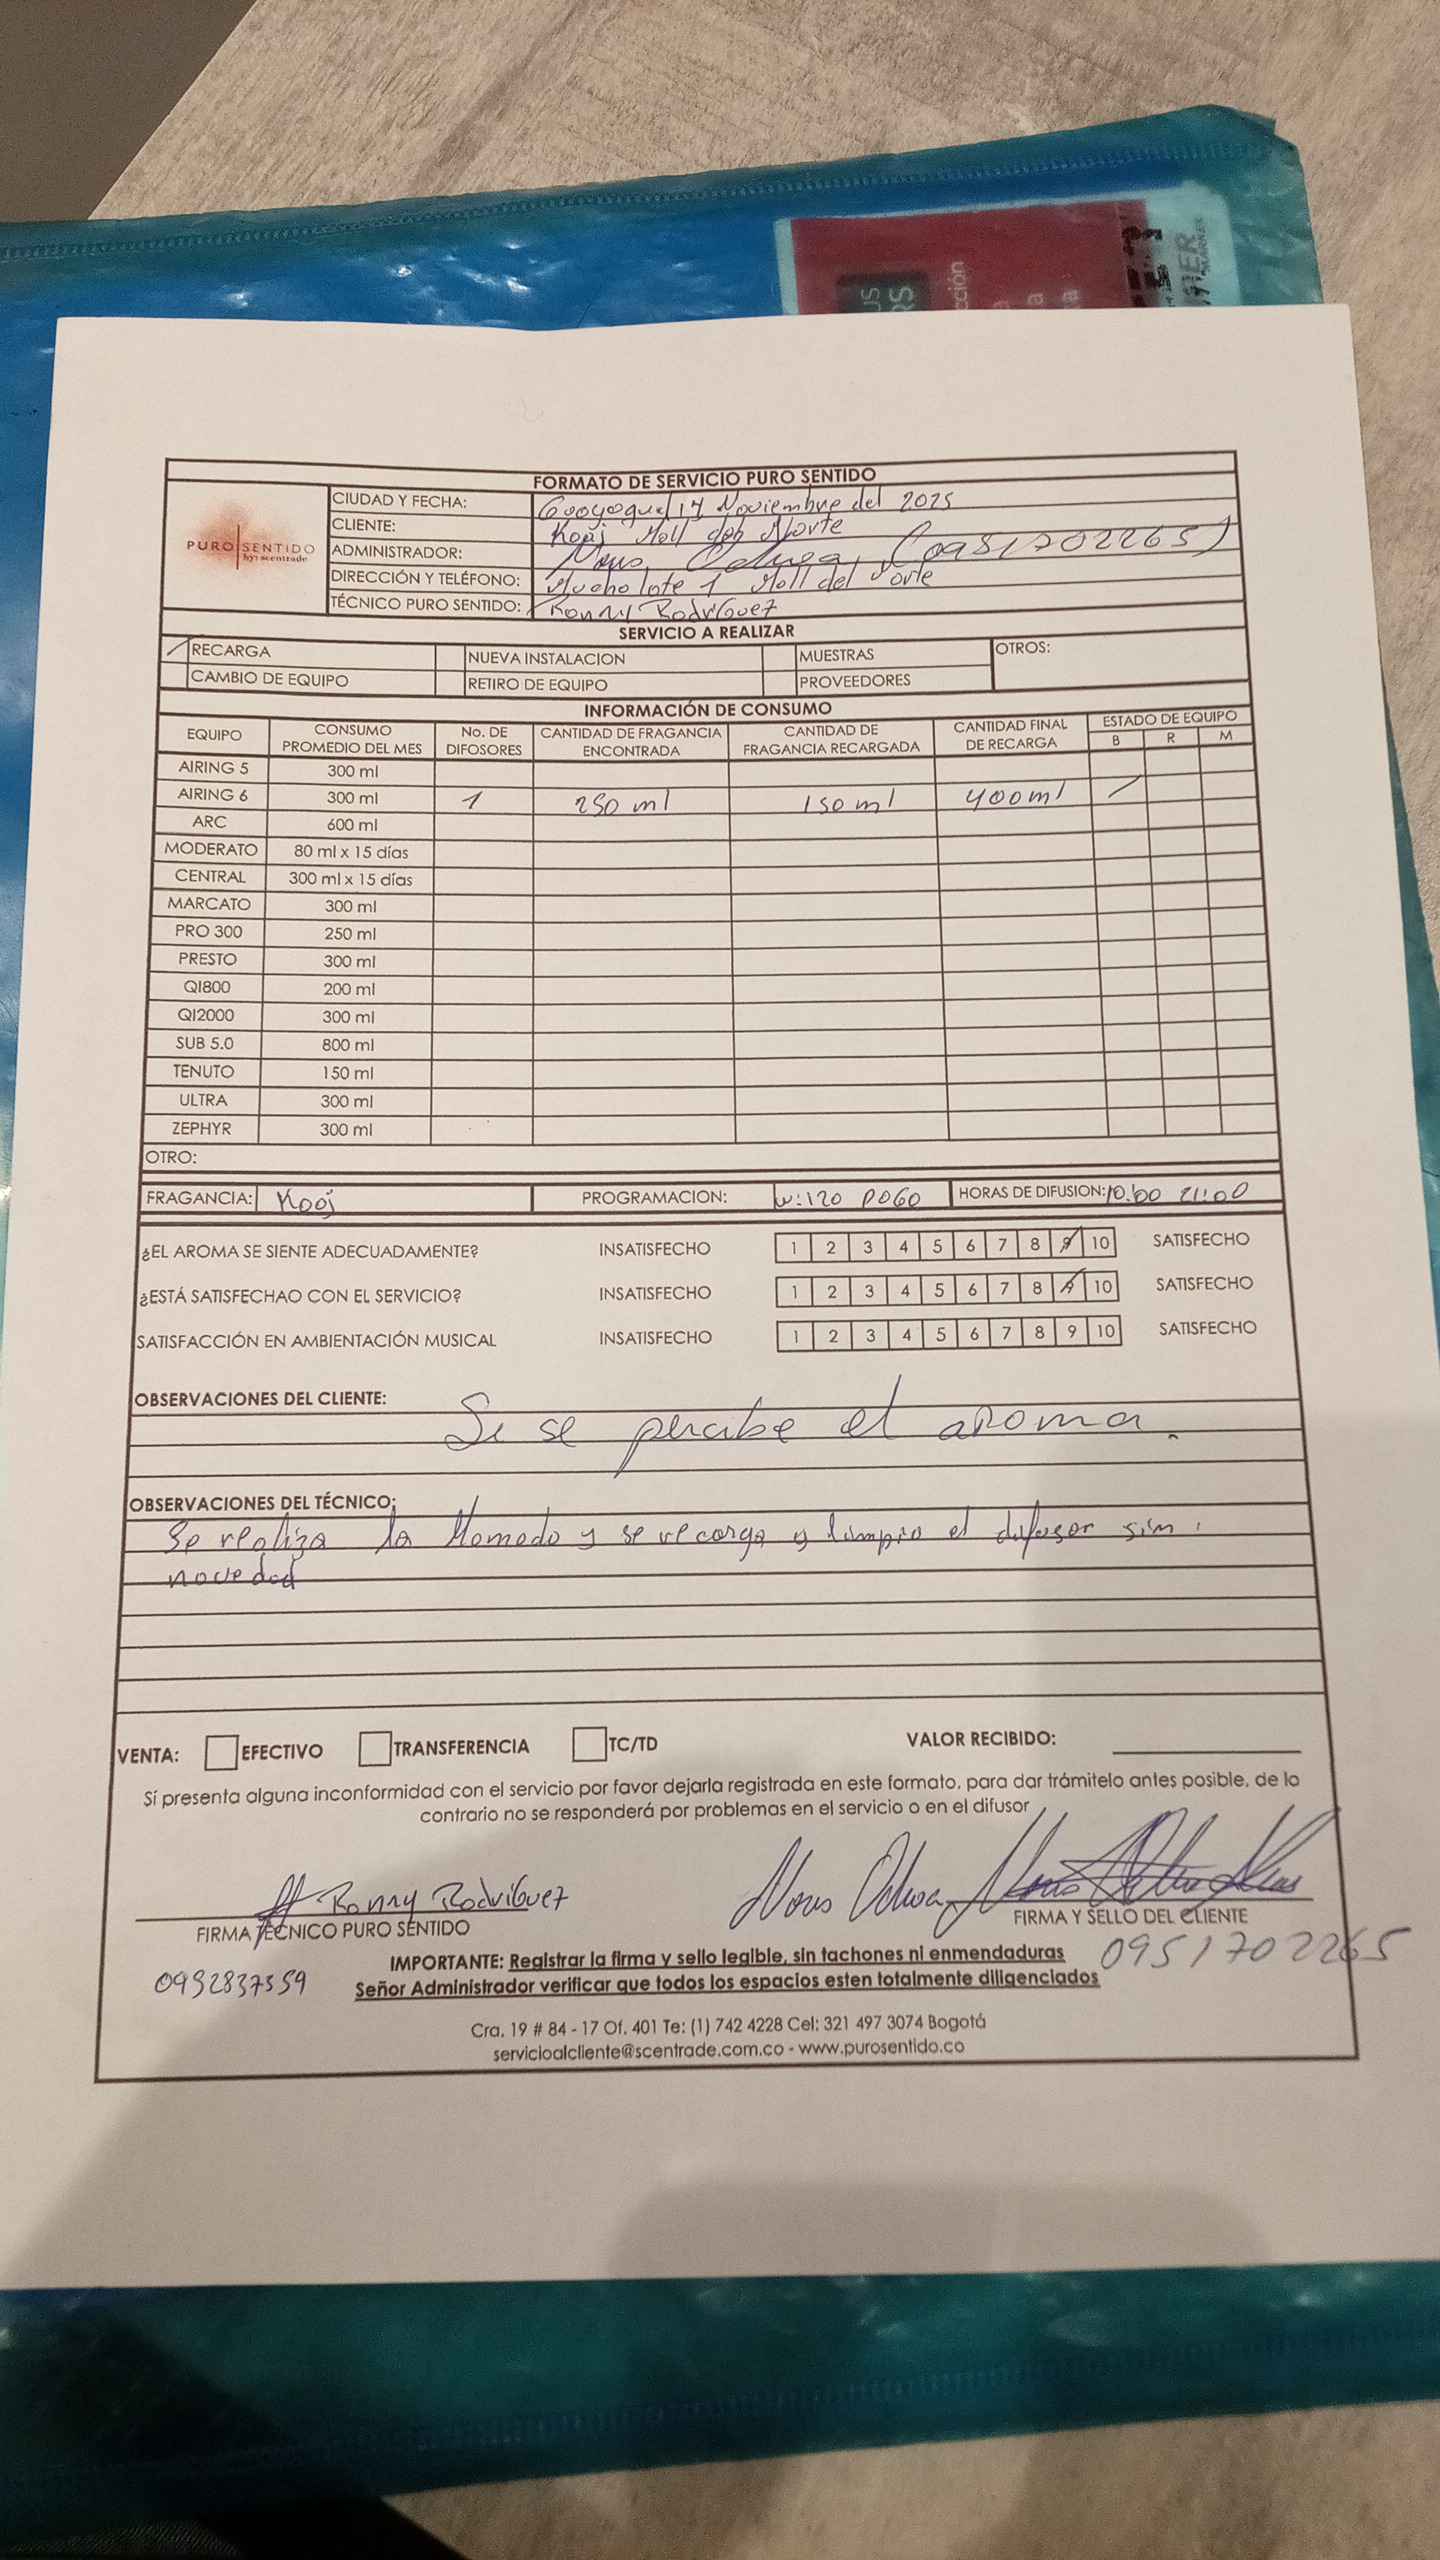 FORMATO DE SERVICIO PURO SENTIDO
PURO SENTIDO
by: scentrade
CIUDAD Y FECHA: Guayaquil 14 Noviembre del 2025
CLIENTE: Koaj Moll del Norte
ADMINISTRADOR: Ochoa (0951702265)
DIRECCIÓN Y TELÉFONO: Mucho lote 1 Moll del Norte
TÉCNICO PURO SENTIDO: Ronny Rodríguez
SERVICIO A REALIZAR
RECARGA NUEVA INSTALACION MUESTRAS OTROS:
CAMBIO DE EQUIPO RETIRO DE EQUIPO PROVEEDORES
INFORMACIÓN DE CONSUMO
EQUIPO CONSUMO PROMEDIO DEL MES No. DE DIFOSORES CANTIDAD DE FRAGANCIA ENCONTRADA CANTIDAD DE FRAGANCIA RECARGADA CANTIDAD FINAL DE RECARGA ESTADO DE EQUIPO
B R M
AIRING 5 300 ml
AIRING 6 300 ml 1 250 ml 150 ml 400 ml /
ARC 600 ml
MODERATO 80 ml x 15 días
CENTRAL 300 ml x 15 días
MARCATO 300 ml
PRO 300 250 ml
PRESTO 300 ml
QI800 200 ml
QI2000 300 ml
SUB 5.0 800 ml
TENUTO 150 ml
ULTRA 300 ml
ZEPHYR 300 ml
OTRO:
FRAGANCIA: Kooj PROGRAMACION: W:120 P060 HORAS DE DIFUSION: 10:00 21:00
¿EL AROMA SE SIENTE ADECUADAMENTE? INSATISFECHO 1 2 3 4 5 6 7 8 9 10 SATISFECHO
¿ESTÁ SATISFECHAO CON EL SERVICIO? INSATISFECHO 1 2 3 4 5 6 7 8 9 10 SATISFECHO
SATISFACCIÓN EN AMBIENTACIÓN MUSICAL INSATISFECHO 1 2 3 4 5 6 7 8 9 10 SATISFECHO
OBSERVACIONES DEL CLIENTE:
Si se percibe el aroma.
OBSERVACIONES DEL TÉCNICO:
Se realiza la llamada y se recarga y limpia el difusor sim
novedad
VENTA: EFECTIVO TRANSFERENCIA TC/TD VALOR RECIBIDO:
Sí presenta alguna inconformidad con el servicio por favor dejarla registrada en este formato, para dar trámitelo antes posible, de lo
contrario no se responderá por problemas en el servicio o en el difusor
Ronny Rodríguez Ochoa
FIRMA TÉCNICO PURO SENTIDO FIRMA Y SELLO DEL CLIENTE
IMPORTANTE: Registrar la firma y sello legible, sin tachones ni enmendaduras 0951702265
0952837559 Señor Administrador verificar que todos los espacios esten totalmente diligenciados
Cra. 19 # 84 - 17 Of. 401 Te: (1) 742 4228 Cel: 321 497 3074 Bogotá
servicioalcliente@scentrade.com.co - www.purosentido.co